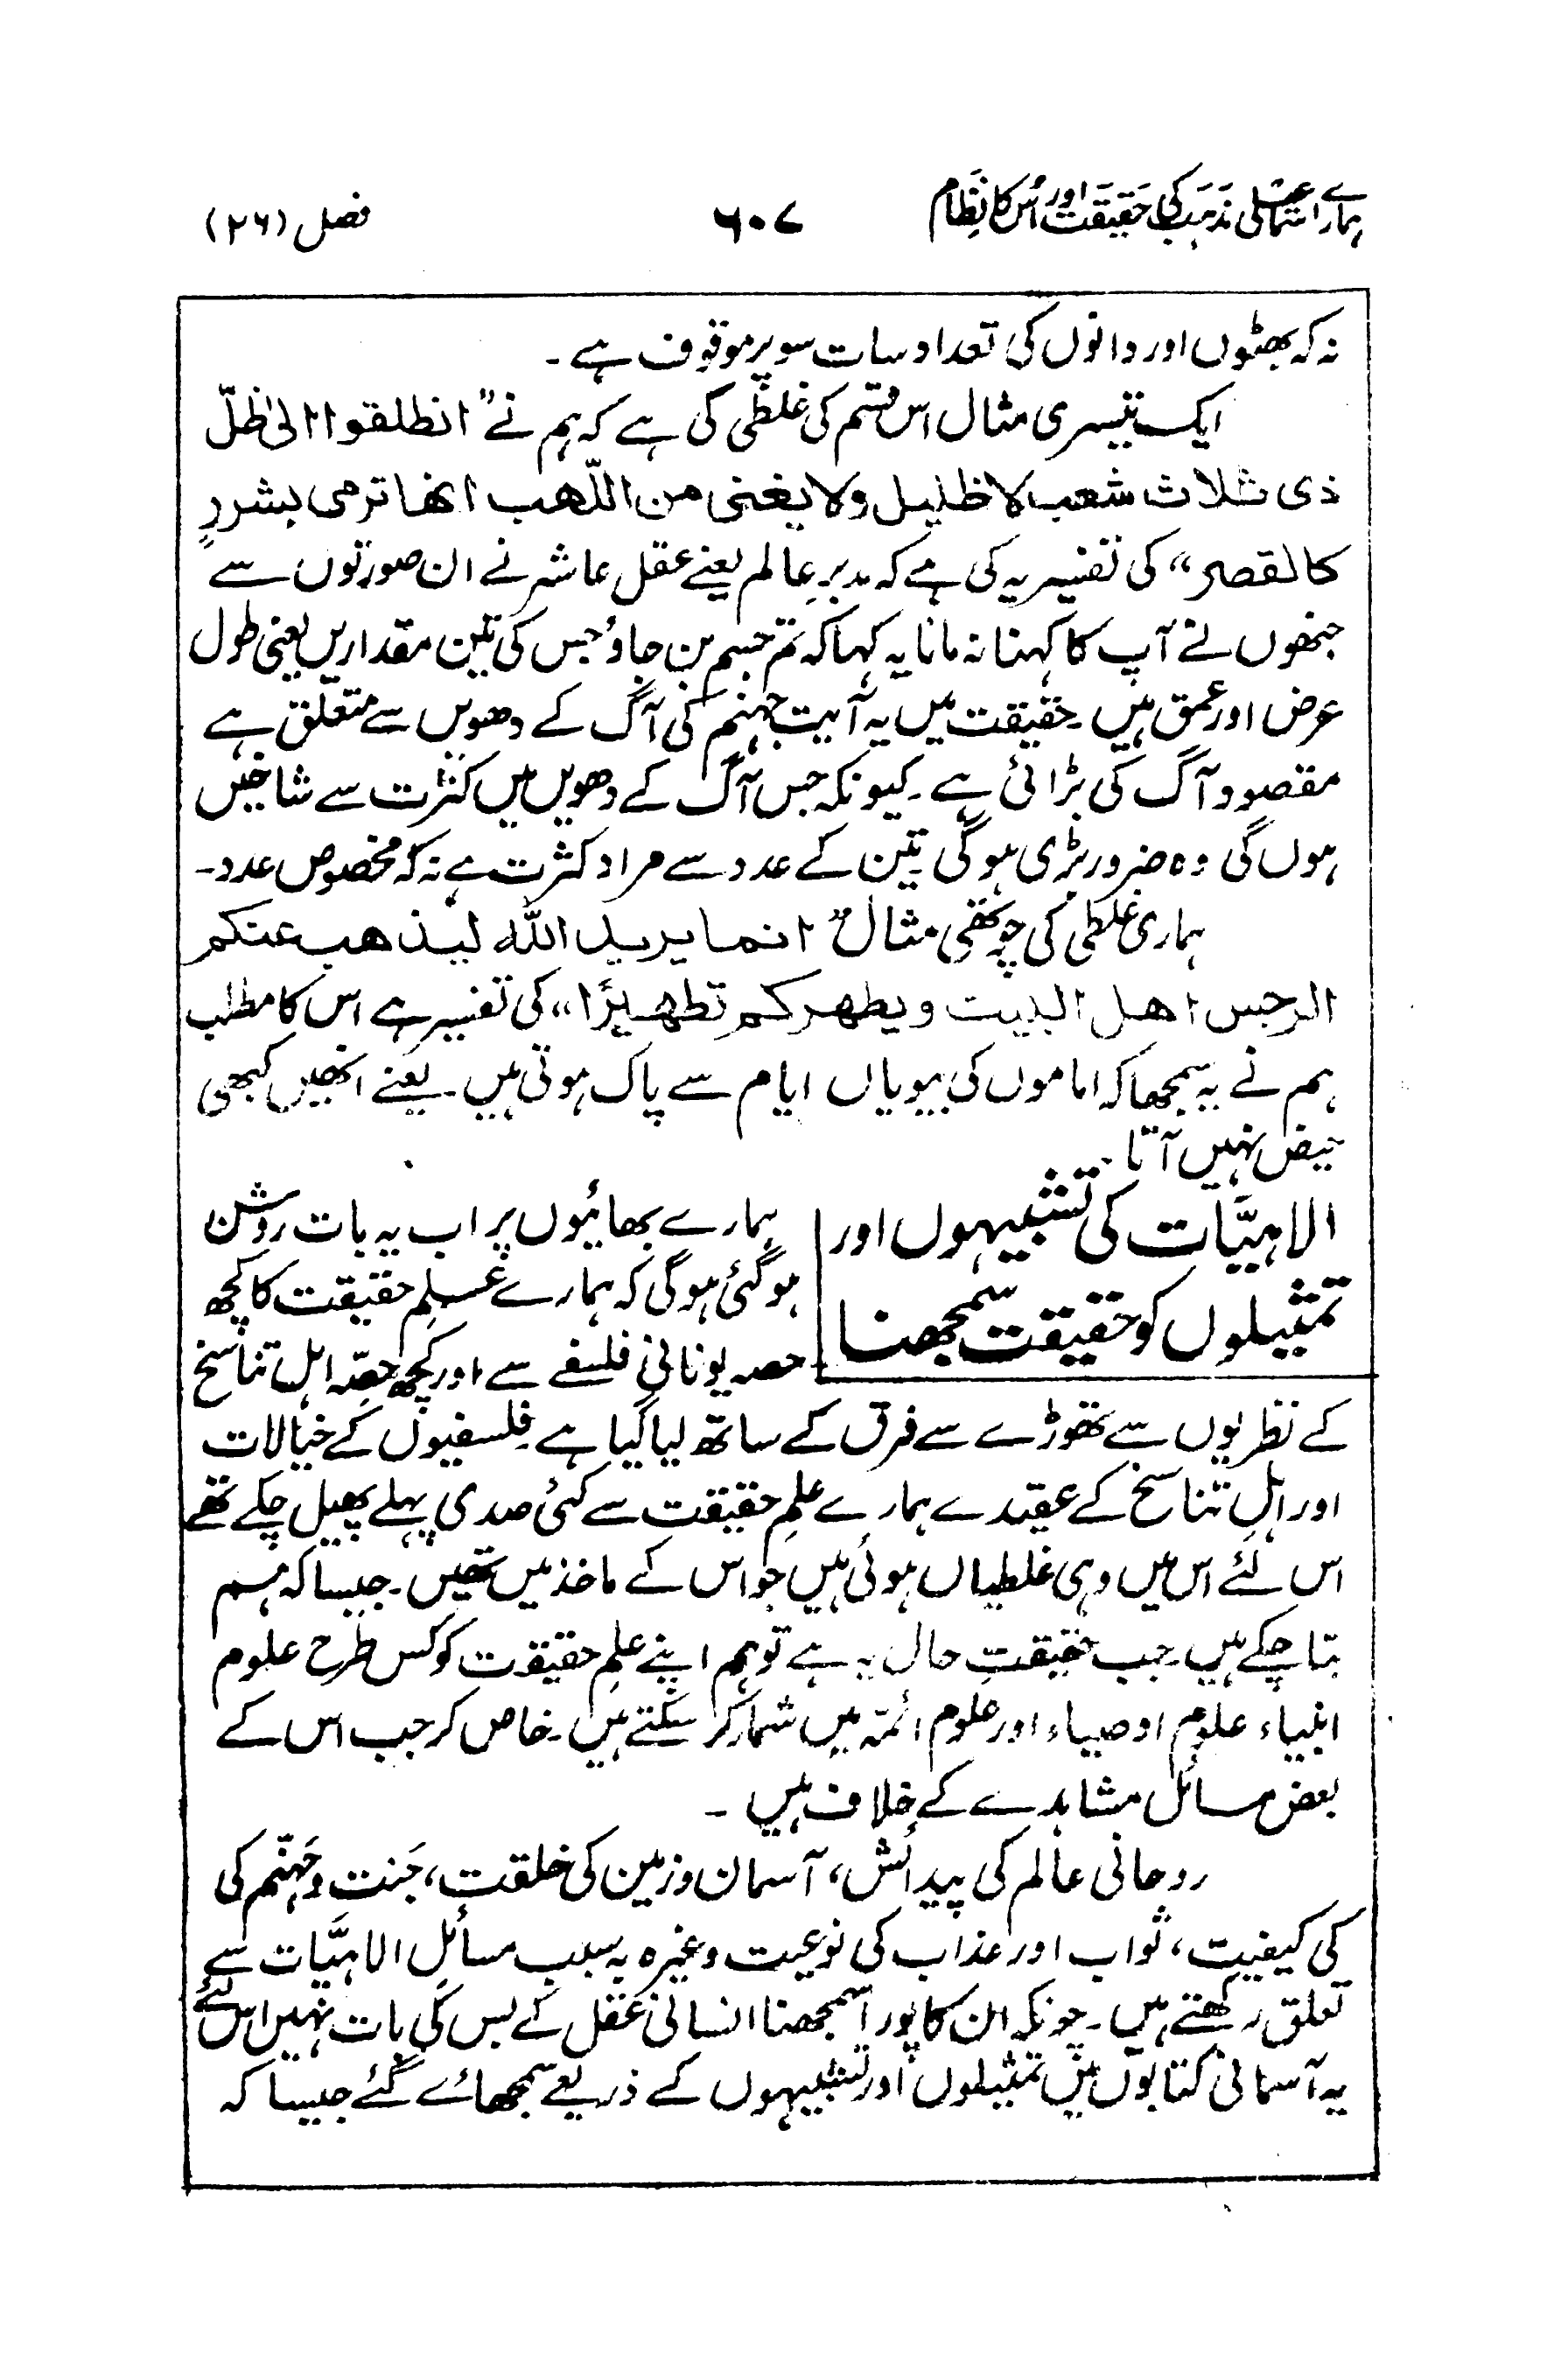 ہمارے اسماعیلی مذہب کی حقیقت اور اُس کا نظام
۶۰۷
فصل (۲۶)
نہ کہ بھٹوں اور دانوں کی تعداد سات سو پر موقوف ہے ۔
ایک تیسری مثال اس قسم کی غلطی کی ہے کہ ہم نے ”انطلقوا الیٰ ظلّ
ذی ثلاث شعب لا ظلیل ولا یغنی من اللّھب انھا ترمی بشررٍ
کالقصر“ کی تفسیر یہ کی ہے کہ مدبرِ عالم یعنے عقل عاشر نے ان صورتوں سے
جنھوں نے آپ کا کہنا نہ مانا یہ کہا کہ تم جسم بن جاؤ جس کی تین مقداریں یعنی طول
عرض اور عمق ہیں ۔ حقیقت میں یہ آیت جہنم کی آگ کے دھویں سے متعلق ہے
مقصود آگ کی بڑائی ہے ۔ کیونکہ جس آگ کے دھویں میں کثرت سے شاخیں
ہوں گی وہ ضرور بڑی ہوگی تین کے عدد سے مراد کثرت ہے نہ کہ مخصوص عدد ۔
ہماری غلطی کی چوتھی مثال ”انما یرید اللّٰہ لیذھب عنکم
الرجس اھل البیت ویطھرکم تطھیرًا“ کی تفسیر ہے اس کا مطلب
ہم نے یہ سمجھا کہ اماموں کی بیویاں ایام سے پاک ہوتی ہیں ۔ یعنے انھیں کبھی
حیض نہیں آتا ۔
الاہیّات کی تشبیہوں اور
تمثیلوں کو حقیقت سمجھنا
ہمارے بھائیوں پر اب یہ بات روشن
ہو گئی ہوگی کہ ہمارے علمِ حقیقت کا کچھ
حصہ یونانی فلسفے سے اور کچھ حصّہ اہل تناسخ
کے نظریوں سے تھوڑے سے فرق کے ساتھ لیا گیا ہے ۔ فلسفیوں کے خیالات
اور اہلِ تناسخ کے عقیدے ہمارے علمِ حقیقت سے کئی صدی پہلے پھیل چکے تھے
اس لئے اس میں وہی غلطیاں ہوئی ہیں جو اس کے ماخذ میں تھیں ۔ جیسا کہ ہم
بتا چکے ہیں ۔ جب حقیقتِ حال یہ ہے تو ہم اپنے علمِ حقیقت کو کس طرح علوم
انبیاء علوم اوصیاء اور علوم ائمّہ میں شمار کر سکتے ہیں ۔ خاص کر جب اس کے
بعض مسائل مشاہدے کے خلاف ہیں ۔
روحانی عالم کی پیدائش، آسمان و زمین کی خلقت، جَنت و جَہنّم کی
کی کیفیت، ثواب اور عذاب کی نوعیت وغیرہ یہ سب مسائلِ الاہیَّات سے
تعلق رکھتے ہیں ۔ چونکہ ان کا پورا سمجھنا انسانی عقل کے بس کی بات نہیں اس لئے
یہ آسمانی کتابوں میں تمثیلوں اور تشبیہوں کے ذریعے سمجھائے گئے جیسا کہ